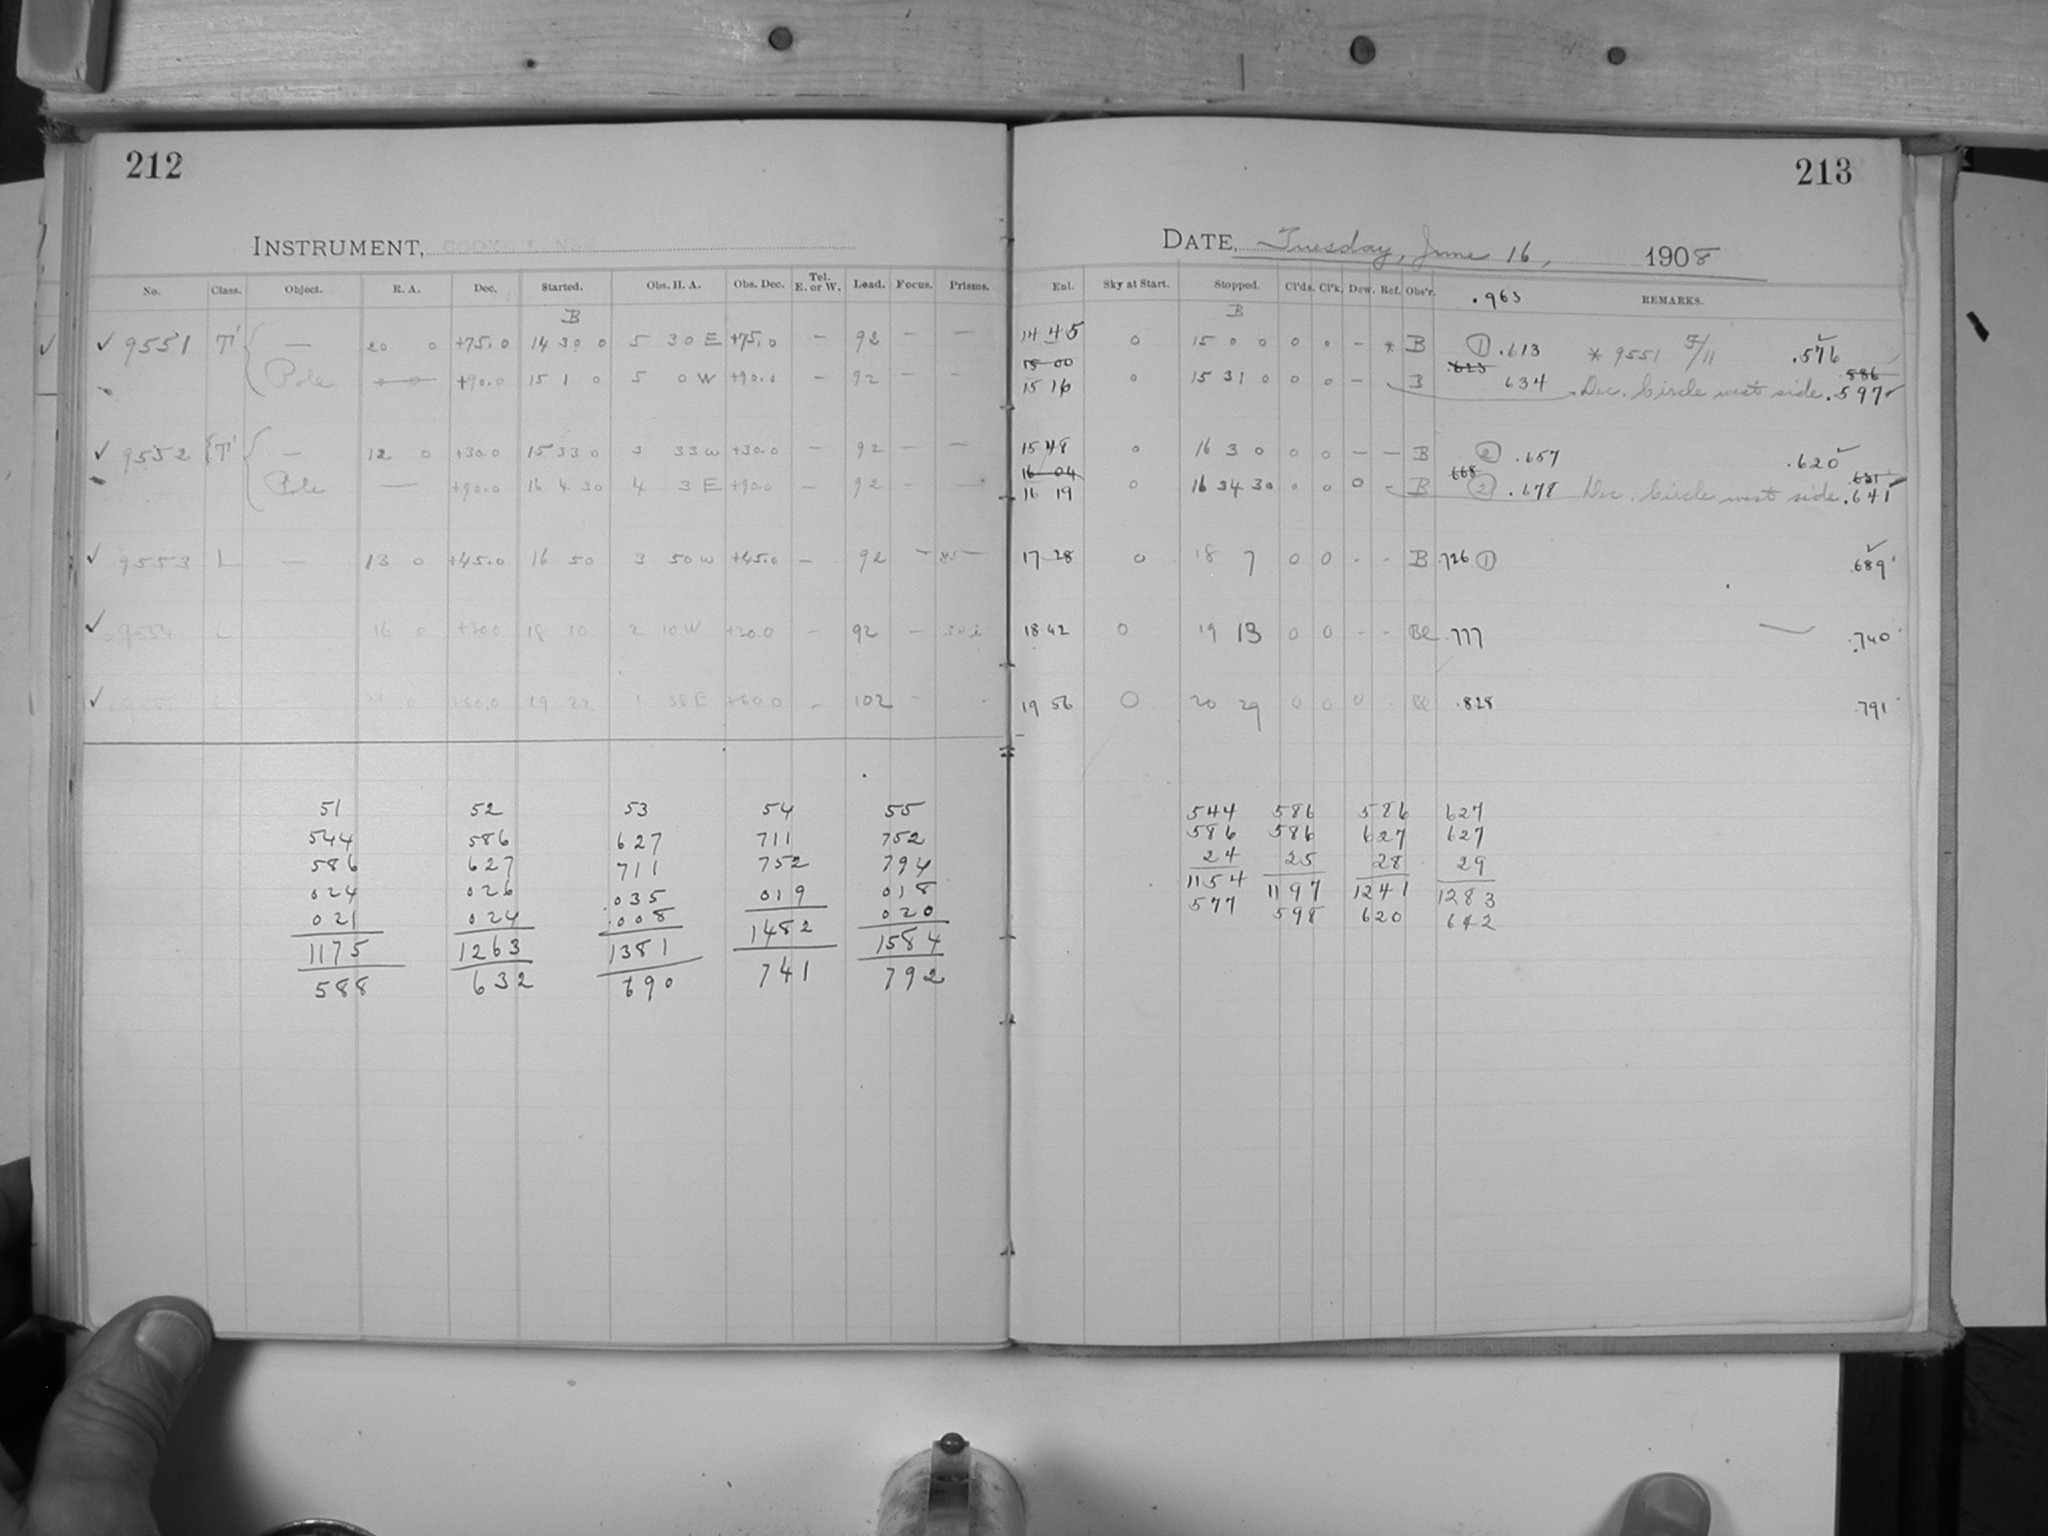 212
INSTRUMENT, COOKE LENS
No. Class. Object. R. A. Dec. Started. Obs. H. A. Obs. Dec. Tel. E. or W. Lead. Focus. Prisms.
B
✓ ✓ 9551 T' { — 20 0 +75.0 14 30 0 5 30 E +75.0 — 92 — —
Pole +90.0 15 1 0 5 0 W +90.0 — 92 — —
✓ 9552 { T' { — 12 0 +30.0 15 33 0 3 33 W +30.0 — 92 — —
Pole — +90.0 16 4 30 4 3 E +90.0 — 92 — —
✓ 9553 L — 13 0 +45.0 16 50 3 50 W +45.0 — 92 —
✓ 9554 L 16 0 +30.0 18 10 2 10 W +30.0 — 92 —
✓ L 0 19 22 1 38 E +60.0 — 102 —
51 52 53 54 55
544 586 627 711 752
586 627 711 752 794
024 026 .035 019 018
021 024 .008 020
1175 1263 1381 1482 1584
588 632 690 741 792
213
DATE, Tuesday, June 16, 1908
Enl. Sky at Start. Stopped. Cl'ds. Cl'k. Dew. Ref. Obs'r. .963 REMARKS.
B
14 45 0 15 0 0 0 0 — * B ① .613 * 9551 5/11 .576 ✓
15 00 .623 .586
15 16 0 15 31 0 0 0 — B 634 Dec. Circle west side .597 ✓
15 48 0 16 3 0 0 0 — — B ② .657 .620 ✓
16 04 668 .631
16 19 0 16 34 30 0 0 0 B ② .678 Dec. Circle west side .641 ✓
17 28 0 18 7 0 0 - - B .726 ① .689 ✓
18 42 0 19 13 0 0 - - Be .777 — .740
19 56 0 20 29 0 0 0 . Be .828 .791
544 586 586 627
586 586 627 627
24 25 28 29
1154 1197 1241 1283
577 598 620 642